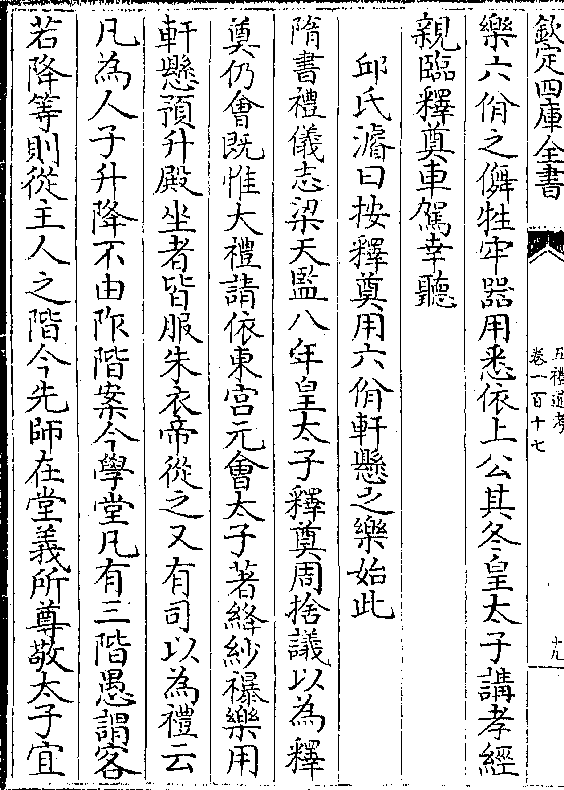 欽定四庫全書
五禮通考
卷一百十七
十九
樂六佾之儛牲牢器用悉依上公其冬皇太子講孝經
親臨釋奠車駕幸聽
邱氏濬曰按釋奠用六佾軒懸之樂始此
隋書禮儀志梁天監八年皇太子釋奠周捨議以為釋
奠仍會既惟大禮請依東宮元會太子著絳紗襮樂用
軒懸預升殿坐者皆服朱衣帝從之又有司以為禮云
凡為人子升降不由阼階案今學堂凡有三階愚謂客
若降等則從主人之階今先師在堂義所尊敬太子宜